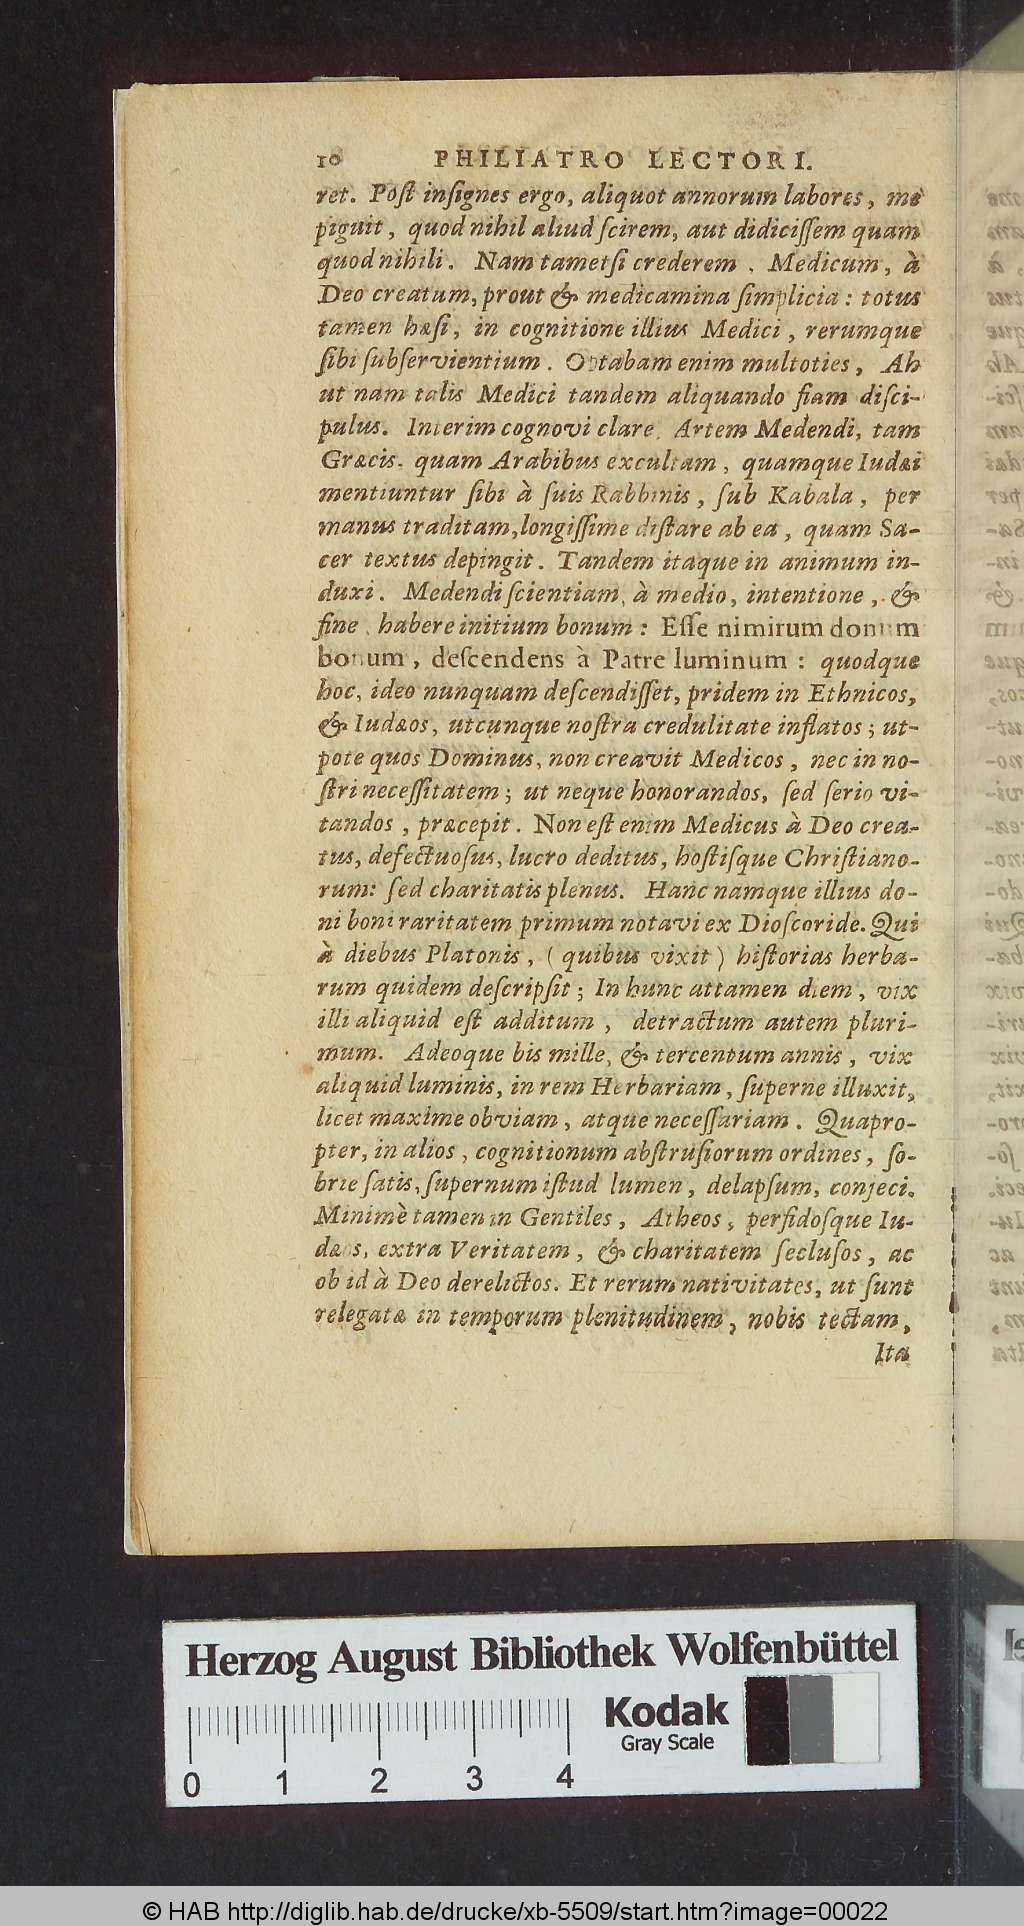 10 PHILIATRO LECTORI.
ret. Poſt inſignes ergo, aliquot annorum labores, me
piguit, quod nihil aliud ſcirem, aut didiciſſem quam
quod nihili. Nam tametſi crederem, Medicum, à
Deo creatum, prout & medicamina ſimplicia: totus
tamen hæſi, in cognitione illius Medici, rerumque
ſibi ſubſervientium. Optabam enim multoties, Ah
ut nam talis Medici tandem aliquando fiam diſci-
pulus. Interim cognovi clare, Artem Medendi, tam
Græcis, quam Arabibus excultam, quamque Iudæi
mentiuntur ſibi à ſuis Rabbinis, ſub Kabala, per
manus traditam, longiſſime diſtare ab ea, quam Sa-
cer textus depingit. Tandem itaque in animum in-
duxi. Medendi ſcientiam, à medio, intentione, &
fine, habere initium bonum: Eſſe nimirum donum
bonum, deſcendens à Patre luminum: quodque
hoc, ideo nunquam deſcendiſſet, pridem in Ethnicos,
& Iudæos, utcunque noſtra credulitate inflatos; ut-
pote quos Dominus, non creavit Medicos, nec in no-
ſtri neceſſitatem; ut neque honorandos, ſed ſerio vi-
tandos, præcepit. Non eſt enim Medicus à Deo crea-
tus, defectuoſus, lucro deditus, hoſtiſque Chriſtiano-
rum: ſed charitatis plenus. Hanc namque illius do-
ni boni raritatem primum notavi ex Dioſcoride. Qui
à diebus Platonis, (quibus vixit) hiſtorias herba-
rum quidem deſcripſit; In hunc attamen diem, vix
illi aliquid eſt additum, detractum autem pluri-
mum. Adeoque bis mille, & tercentum annis, vix
aliquid luminis, in rem Herbariam, ſuperne illuxit,
licet maxime obviam, atque neceſſariam. Quapro-
pter, in alios, cognitionum abſtruſiorum ordines, ſo-
brie ſatis, ſupernum iſtud lumen, delapſum, conjeci.
Minimè tamen in Gentiles, Atheos, perfidoſque Iu-
dæos, extra Veritatem, & charitatem ſecluſos, ac
ob id à Deo derelictos. Et rerum nativitates, ut ſunt
relegatæ in temporum plenitudinem, nobis tectam,
Ita
Herzog August Bibliothek Wolfenbüttel
Kodak
Gray Scale
0 1 2 3 4
© HAB http://diglib.hab.de/drucke/xb-5509/start.htm?image=00022